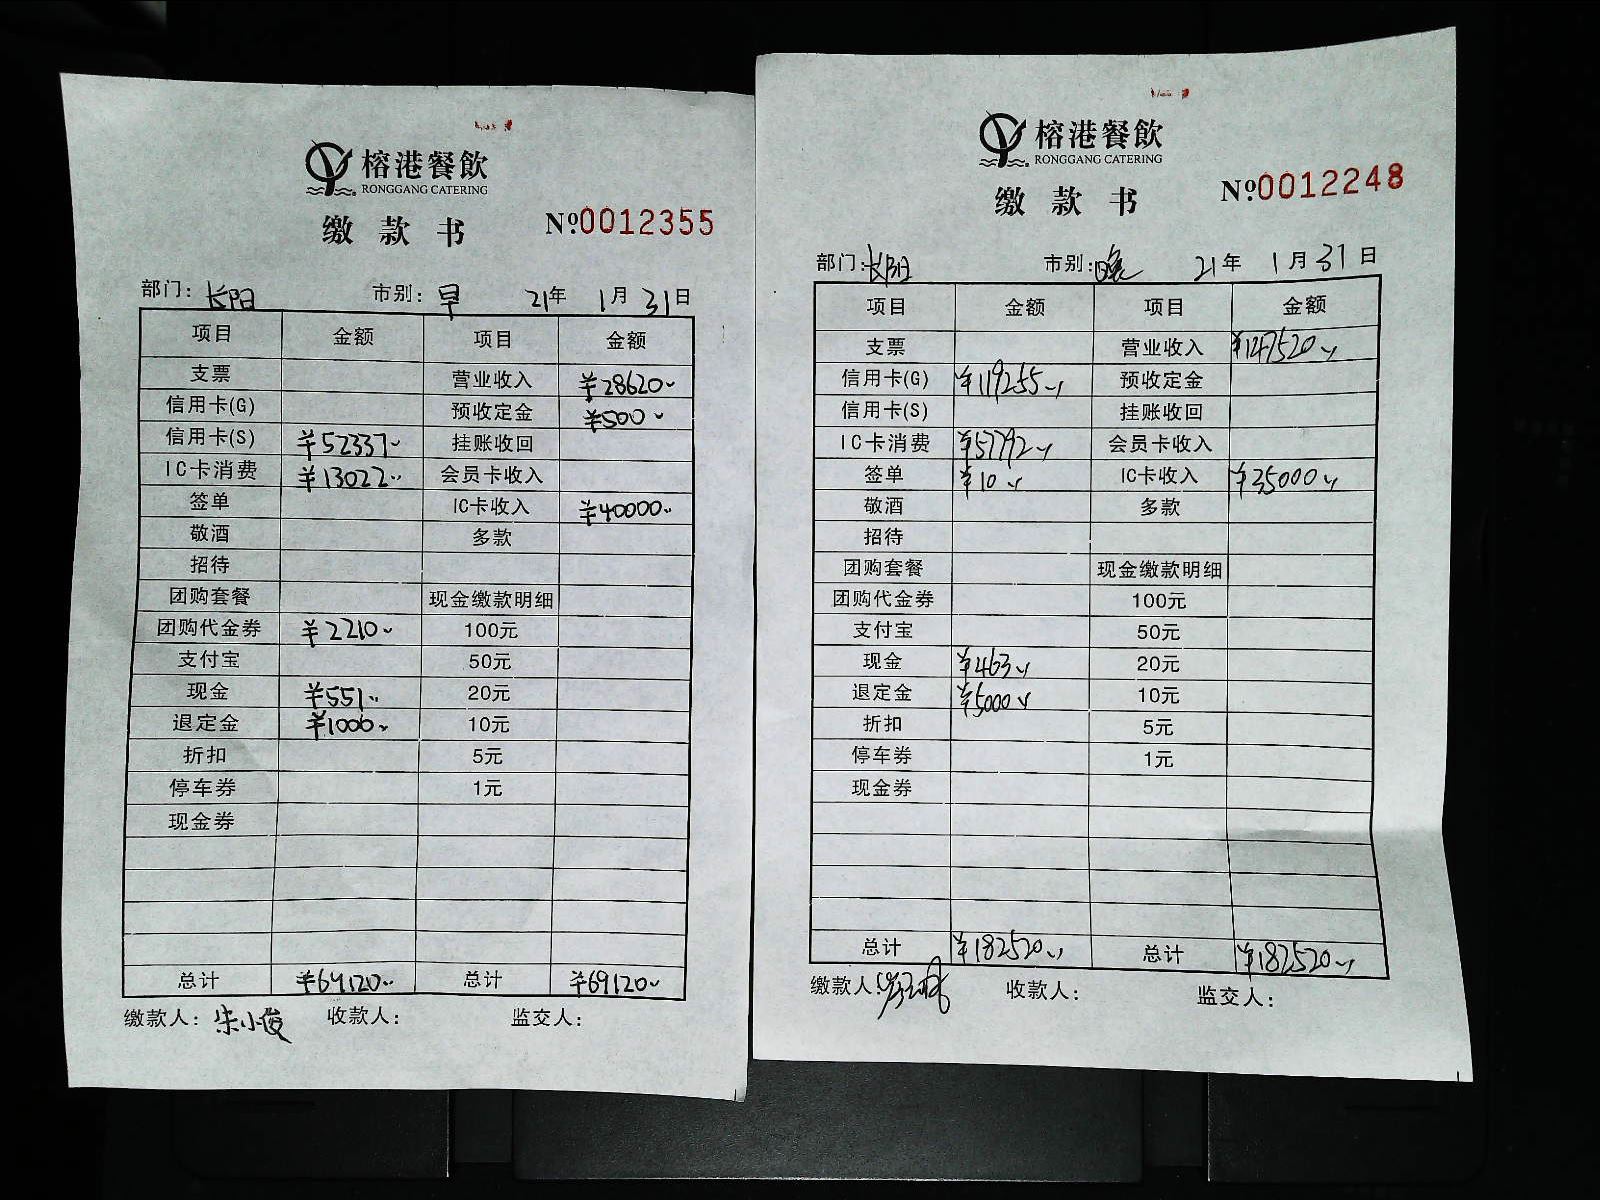 榕港餐飲
RONGGANG CATERING
缴款书
№0012355
部门：长阳 市别：早 21年 1月 31日
项目 金额 项目 金额
支票 营业收入 ¥28620
信用卡(G) 预收定金 ¥500
信用卡(S) ¥52337 挂账收回
IC卡消费 ¥13022 会员卡收入
签单 IC卡收入 ¥40000
敬酒 多款
招待
团购套餐 现金缴款明细
团购代金券 ¥2210 100元
支付宝 50元
现金 ¥551 20元
退定金 ¥1000 10元
折扣 5元
停车券 1元
现金券
总计 ¥69120 总计 ¥69120
缴款人：朱小俊 收款人： 监交人：
榕港餐飲
RONGGANG CATERING
缴款书
№0012248
部门：长阳 市别：晚 21年 1月 31日
项目 金额 项目 金额
支票 营业收入 ¥147520
信用卡(G) ¥119255 预收定金
信用卡(S) 挂账收回
IC卡消费 ¥57792 会员卡收入
签单 ¥10 IC卡收入 ¥35000
敬酒 多款
招待
团购套餐 现金缴款明细
团购代金券 100元
支付宝 50元
现金 ¥463 20元
退定金 ¥5000 10元
折扣 5元
停车券 1元
现金券
总计 ¥182520 总计 ¥182520
缴款人： 收款人： 监交人：